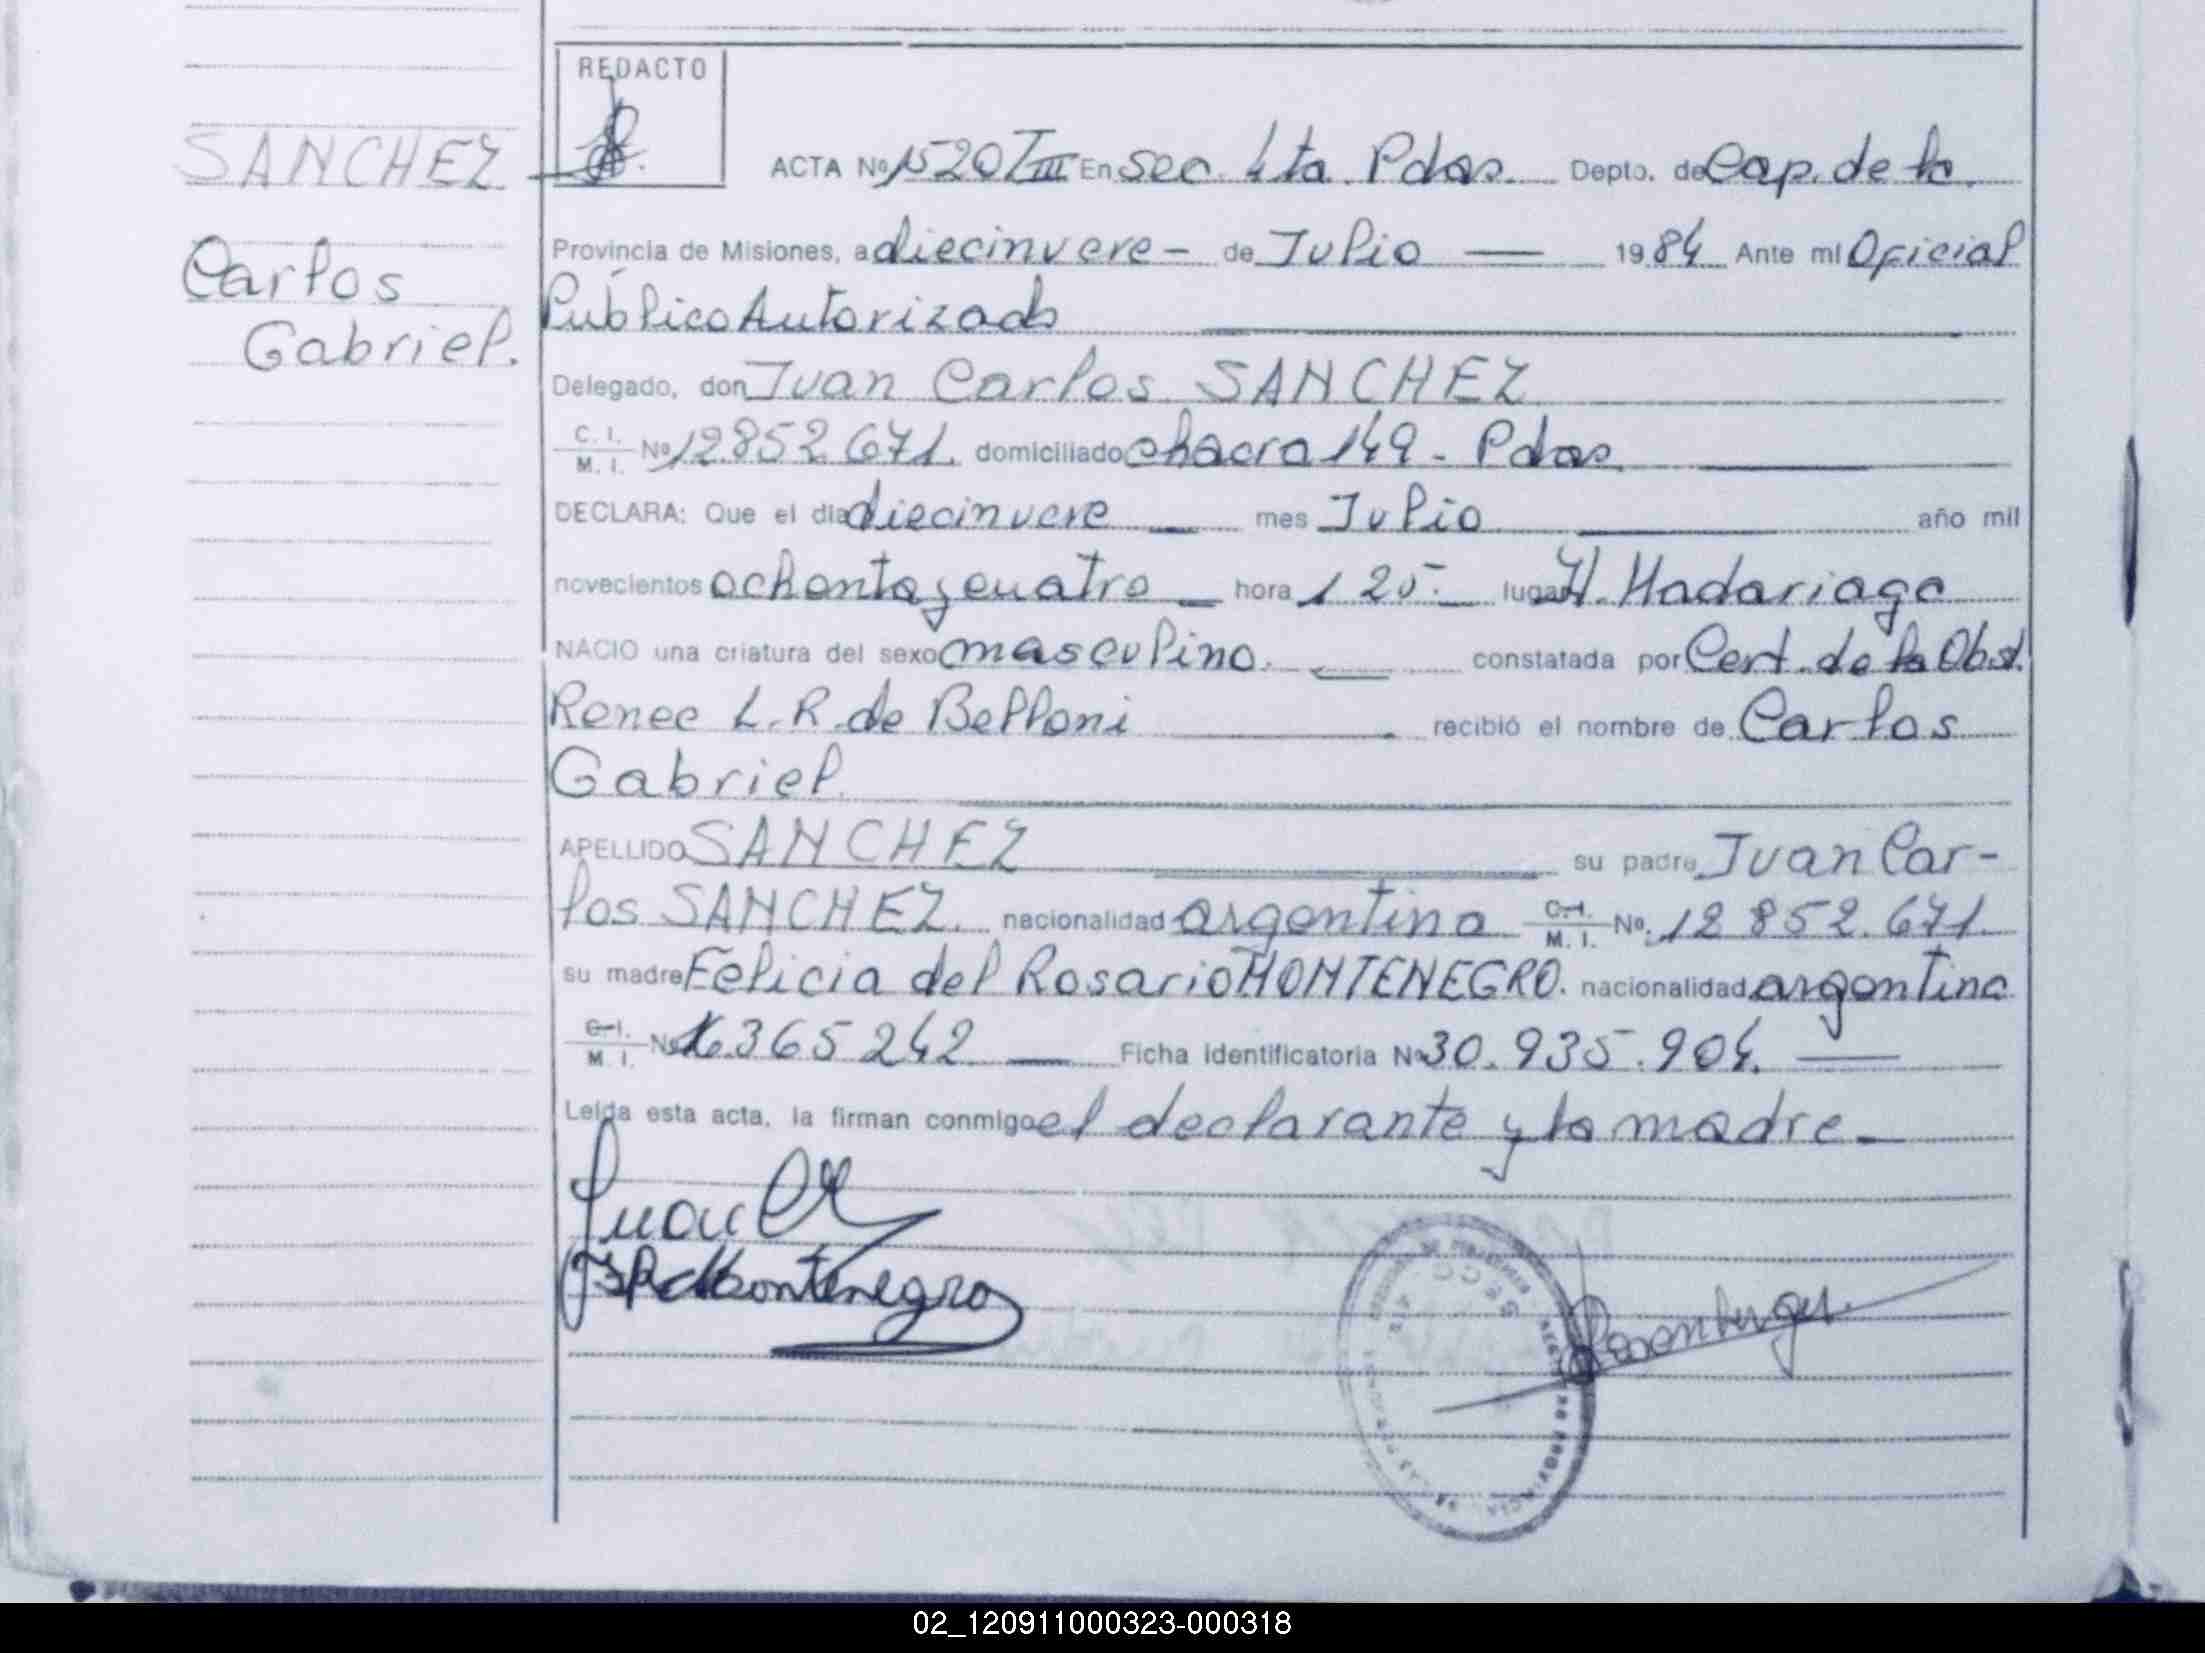 REDACTO
SANCHEZ
ACTA Nº 1520 T III En Sec. 4ta. Pdas. Depto. de Cap. de la
Carlos
Gabriel.
Provincia de Misiones, a diecinueve - de Julio — 1984 Ante mí Oficial
Público Autorizado
Delegado, don Juan Carlos SANCHEZ
C. I.
M. I. Nº 12.852.671. domiciliado chacra 149 - Pdas.
DECLARA: Que el día diecinueve — mes Julio — año mil
novecientos ochenta y cuatro — hora 1 25. — lugar H. Madariaga
NACIO una criatura del sexo masculino. — constatada por Cert. de la Obst.
Renee L. R. de Belloni — recibió el nombre de Carlos
Gabriel.
APELLIDO SANCHEZ — su padre Juan Car-
los SANCHEZ. nacionalidad argentina C. I. M. I. Nº 12.852.671.
su madre Felicia del Rosario MONTENEGRO. nacionalidad argentina
C. I.
M. I. Nº 16.365 242 — Ficha identificatoria Nº 30.935.904. —
Leída esta acta, la firman conmigo el declarante y la madre —
Juan
Montenegro
SECC 4